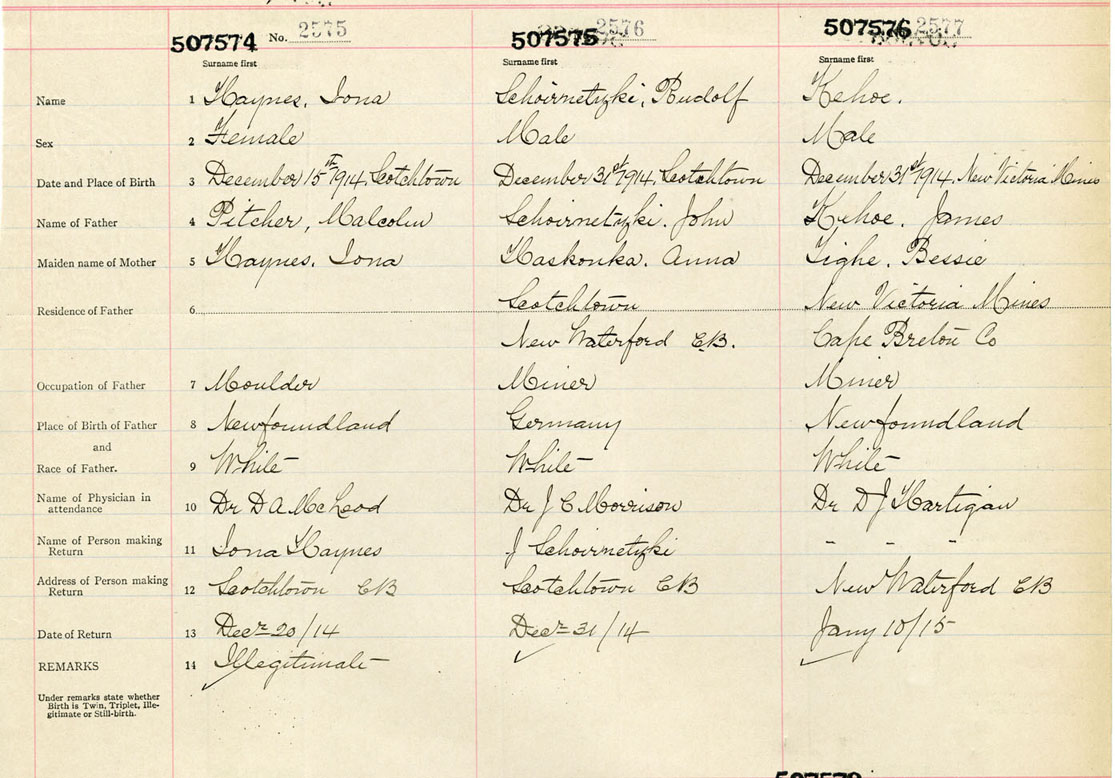 507574 No. 2575 507575 2576 507576 2577
Surname first Surname first Surname first
Name 1 Haynes, Iona Schoirnetzki, Rudolf Kehoe.
Sex 2 Female Male Male
Date and Place of Birth 3 December 15th 1914, Scotchtown December 31st 1914, Scotchtown December 31st 1914, New Victoria Mines
Name of Father 4 Pitcher, Malcolm Schoirnetzki. John Kehoe. James
Maiden name of Mother 5 Haynes. Iona Haskonka. Anna Tighe. Bessie
Residence of Father 6 Scotchtown New Victoria Mines
New Waterford C.B. Cape Breton Co
Occupation of Father 7 Moulder Miner Miner
Place of Birth of Father 8 Newfoundland Germany Newfoundland
and
Race of Father. 9 White White White
Name of Physician in
attendance 10 Dr D A McLeod Dr J C Morrison Dr D J Hartigan
Name of Person making
Return 11 Iona Haynes J Schoirnetzki " " "
Address of Person making
Return 12 Scotchtown CB Scotchtown CB New Waterford CB
Date of Return 13 Decr 20/14 Decr 31/14 Jany 10/15
REMARKS 14 Illegitimate
Under remarks state whether
Birth is Twin, Triplet, Ille-
gitimate or Still-birth.